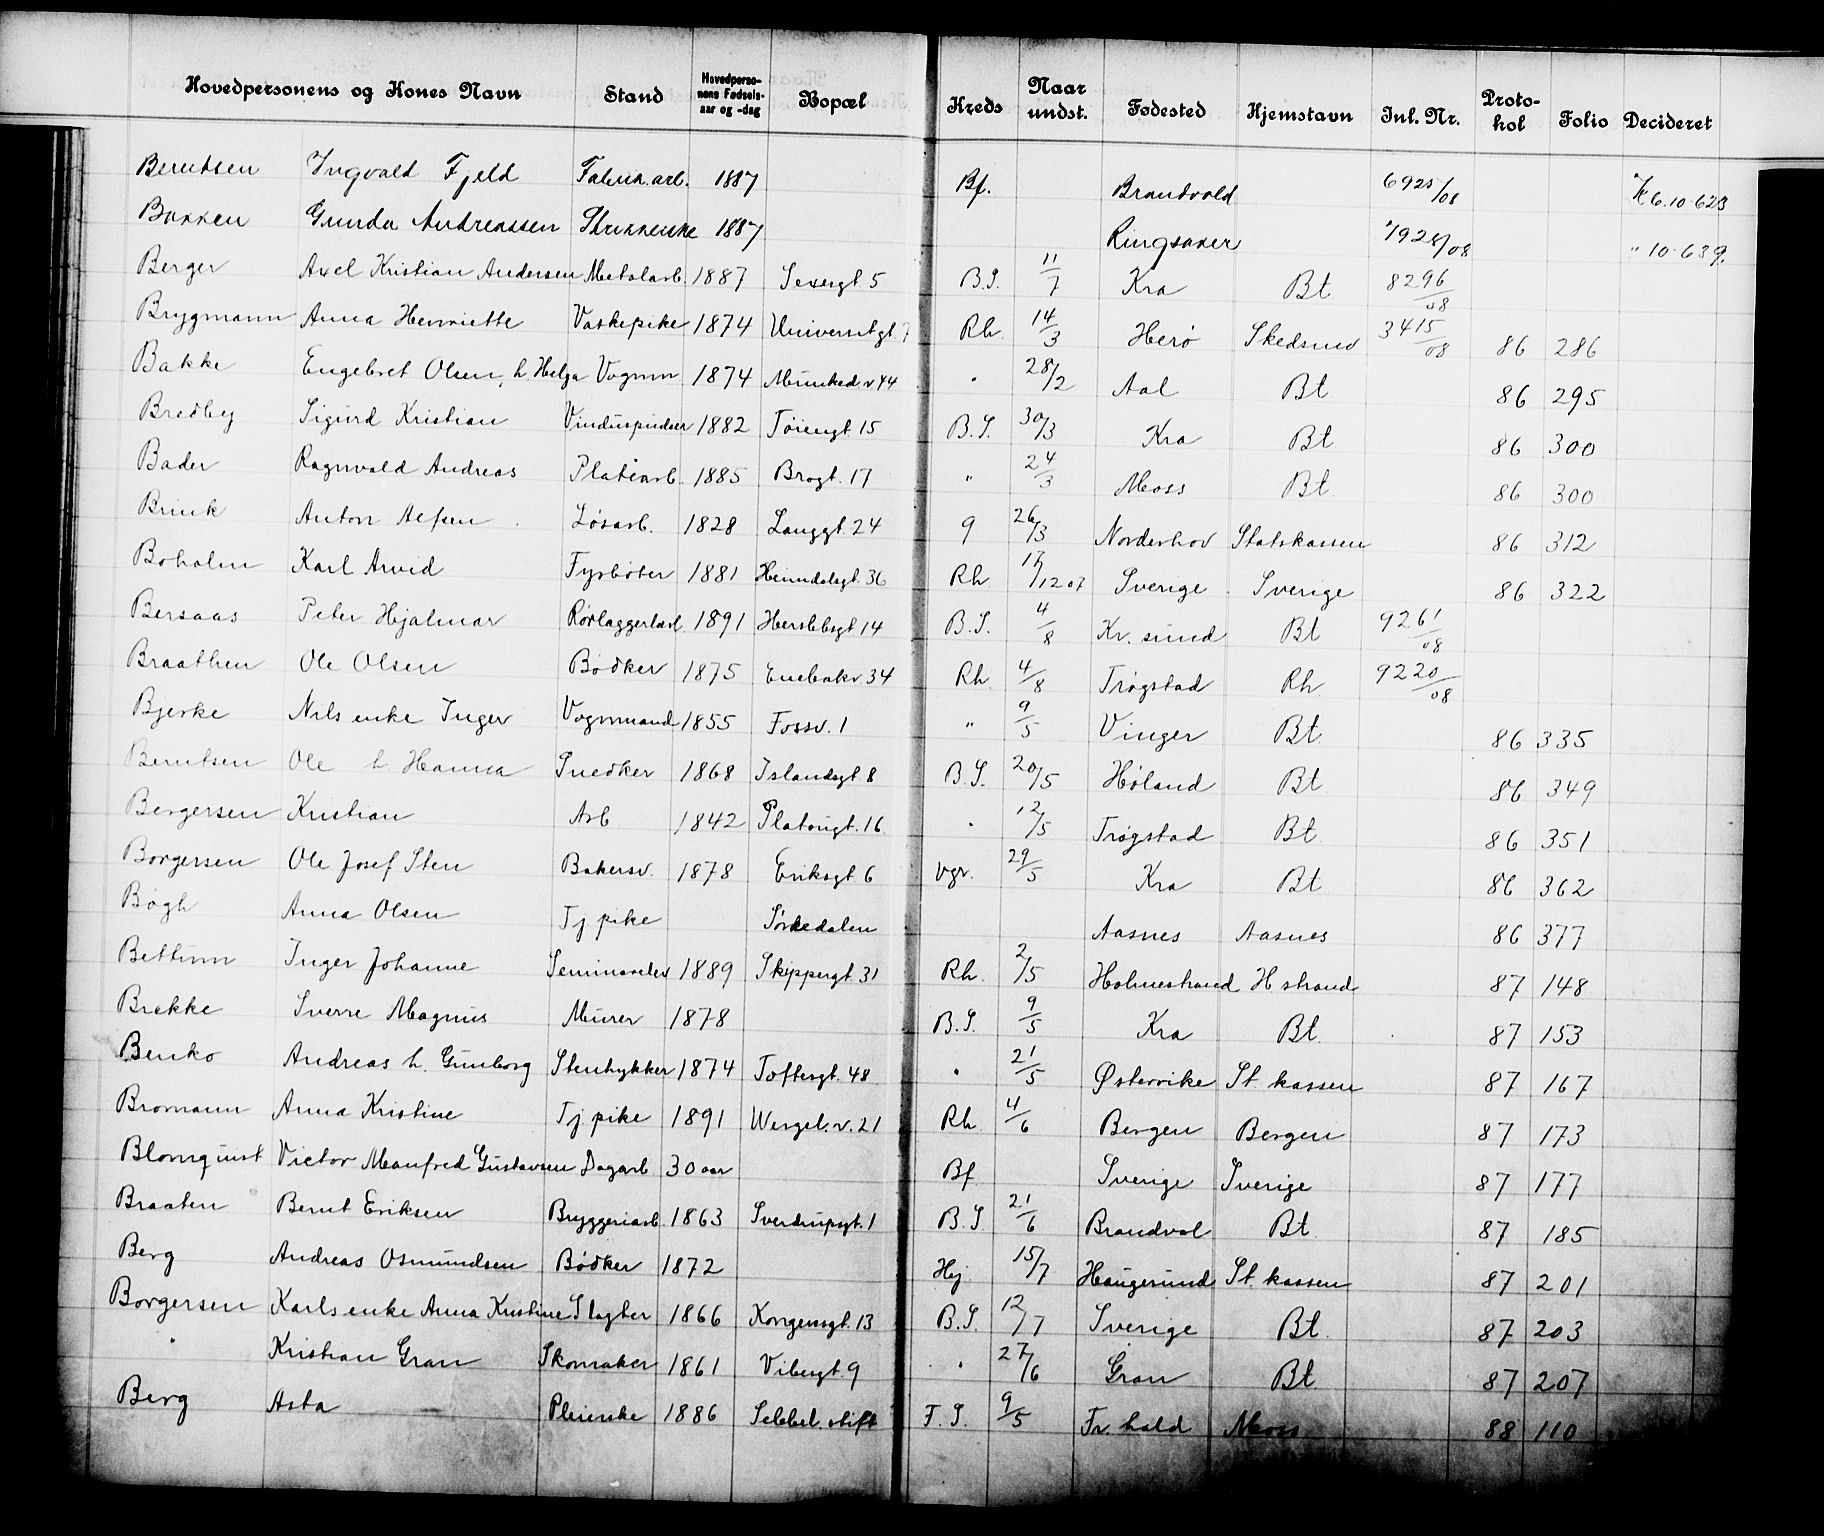 Hovedpersonens og Kones Navn Stand Hovedperso-nens Fødsels-aar og -dag Bopæl Kreds Naar undst. Fødested Hjemstavn Inl. Nr. Proto-kol Folio Decideret
Berntsen Ingvald Fjeld Fabrik.arb. 1887 Bf. Brandvold 6925/08 K 6.10-623
Bakken Gunda Andreassen Strikkerske 1887 Ringsaker 7928/08 " 10-639.
Berger Axel Kristian Andersen Metalarb. 1887 Sexesgt 5 B.S. 11/7 Kra Bt. 8296/08
Brygmann Anna Henriette Vaskepike 1874 Universitgt 7 Rh. 14/3 Herø Skedsmo 3415/08 86 286
Bakke Engebret Olsen, h. Helga Vognm 1874 Munked v 44 " 28/2 Aal Bt 86 295
Bredby Sigurd Kristian Vinduspudser 1882 Tøiengt. 15 B.S. 30/3 Kra Bt 86 300
Bader Ragnvald Andreas Platearb. 1885 Brogt. 17 " 24/3 Moss Bt. 86 300
Brink Anton Alfsen Løsarb. 1828 Langgt. 24 9 26/3 Norderhov Statskassen 86 312
Boholm Karl Arvid Fyrbøter 1881 Heimdalsgt. 36 Rh. 17/12 07 Sverige Sverige 86 322
Bersaas Peter Hjalmar Rørlæggerlærl 1891 Herslebsgt 14 B.S. 4/8 Kr. sund Bt 9261/08
Braathen Ole Olsen Bødker 1875 Enebakv. 34 Rh. 4/8 Trøgstad Rh. 9220/08
Bjerke Nils enke Inger Vognmand 1855 Fossv. 1 " 9/5 Vinger Bt. 86 335
Berntsen Ole h. Hanna Snedker 1868 Islandsgt. 8 B.S. 20/5 Høland Bt 86 349
Bergersen Kristian Arb 1842 Platousgt. 16 " 12/5 Trøgstad Bt. 86 351
Borgersen Ole Josef Sten Bakersv. 1878 Eriksgt. 6 Vgr. 29/5 Kra Bt 86 362
Bøgh Anna Olsen Tj pike Sørkedalen Aasnes Aasnes 86 377
Bettum Inger Johanne Seminarelev 1889 Skippergt. 31 Rh. 2/5 Holmestrand H strand 87 148
Brekke Sverre Magnus Murer 1878 B.S. 9/5 Kra Bt. 87 153
Benko Andreas h. Gunborg Stenhykker 1874 Toftesgt. 48 " 21/5 Østervike St. kassen 87 167
Bromann Anna Kristine Tj pike 1891 Wergel. v. 21 Rh. 4/6 Bergen Bergen 87 173
Blomquist Victor Manfred Gustavsen Dagarb 30 aar Bf Sverige Sverige 87 177
Braaten Bernt Eriksen Bryggeriarb. 1863 Sverdrupsgt. 1 B.S. 21/6 Brandvol Bt. 87 185
Berg Andreas Osmundsen Bødker 1872 Hej 15/7 Haugesund St. kassen 87 201
Borgersen Karls enke Anna Kristine Slagter 1866 Kongensgt. 13 B.S. 12/7 Sverige Bt. 87 203
" Kristian Gran Skomaker 1861 Vibesgt. 9 " 27/6 Gran Bt 87 207
Berg Asta Pleierske 1886 Selbel. stift F.S. 9/5 Fr. hald Moss 88 110